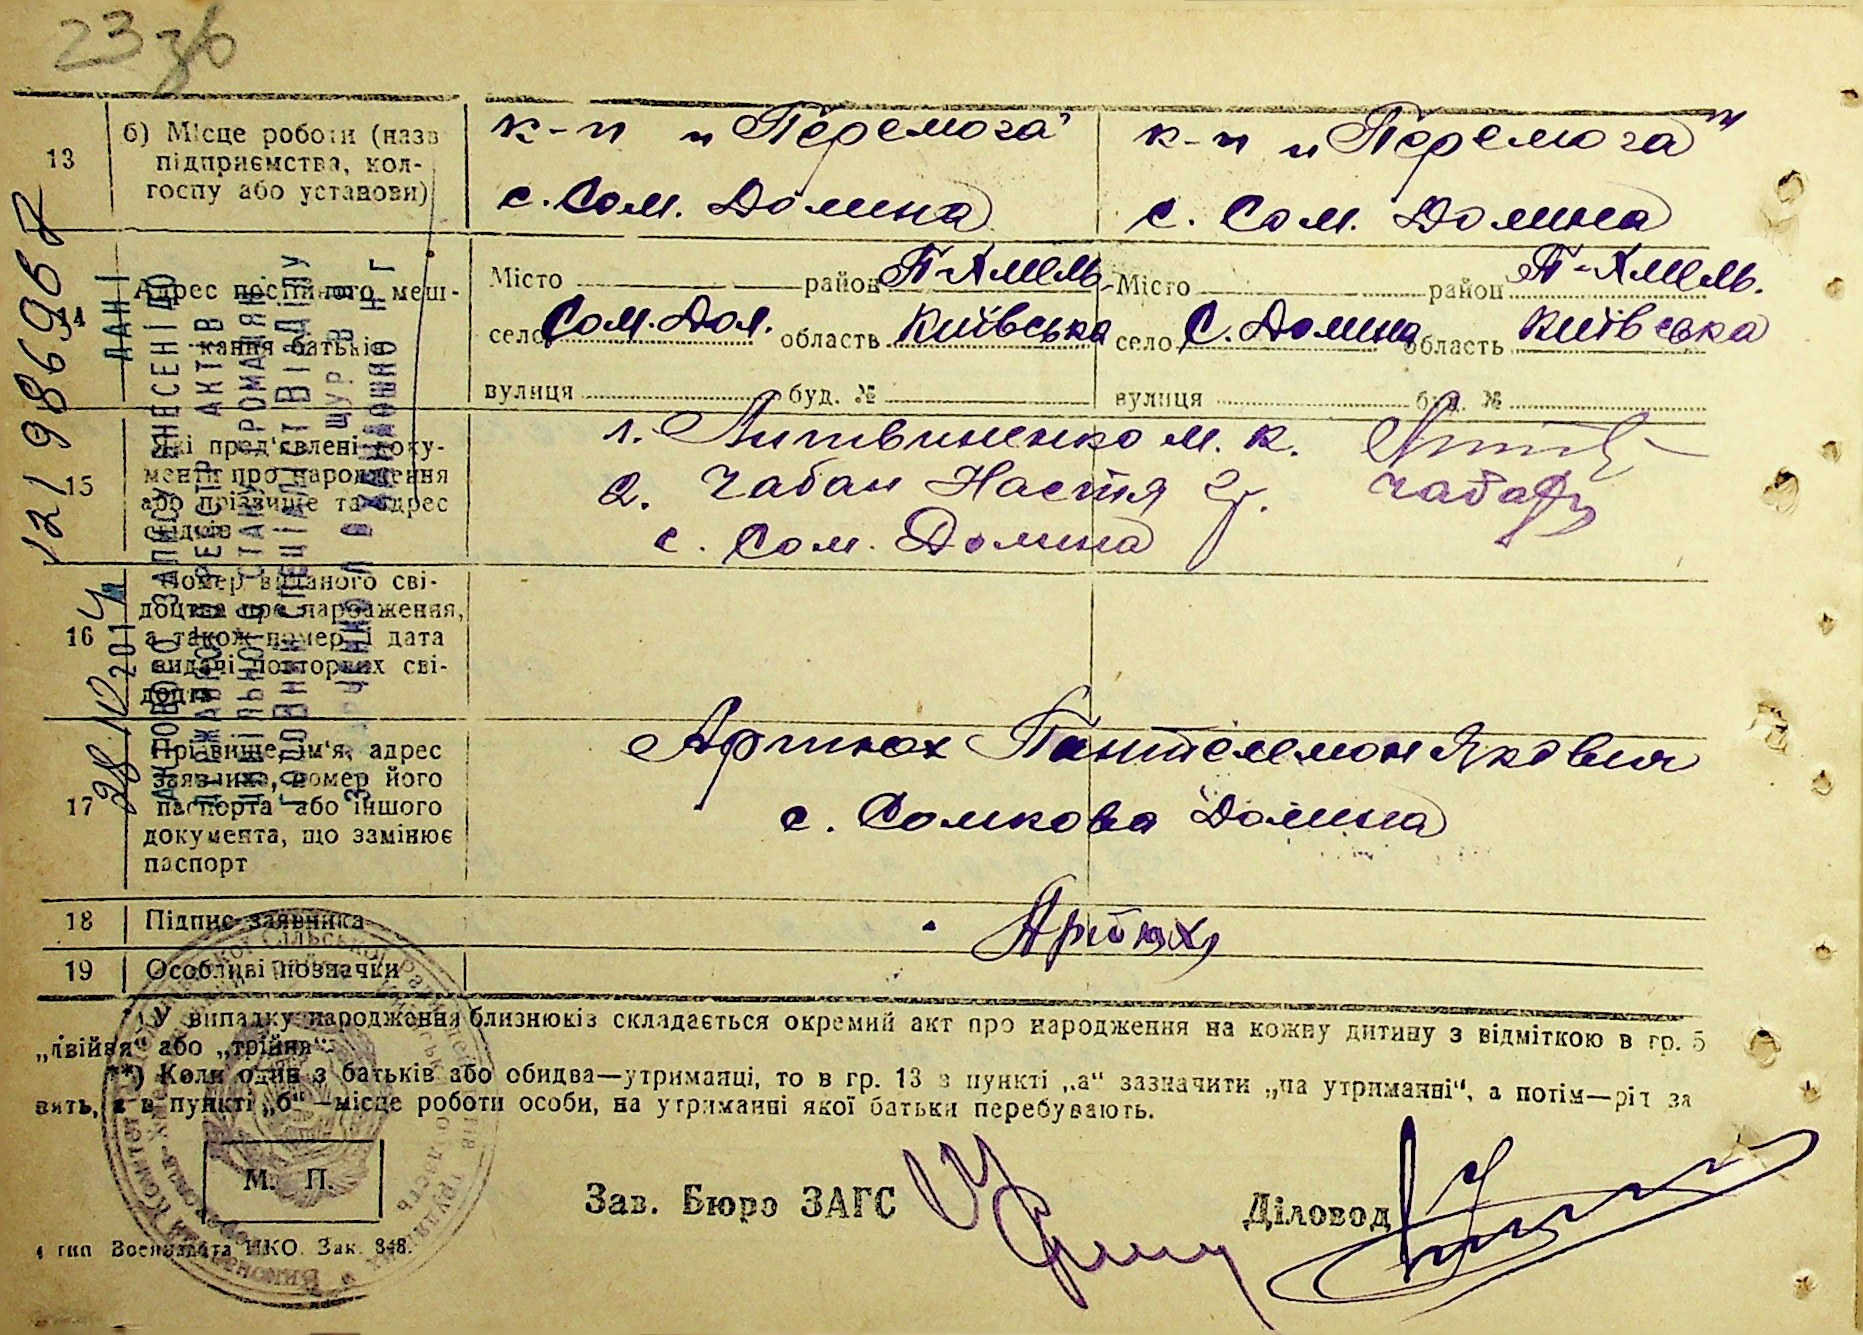 23 зв
13
б) Місце роботи (назв
підприємства, кол-
госпу або установи)
к-п „Перемога"
с. Сом. Долина
к-п „Перемога"
с. Сом. Долина
14
Адрес постійного меш-
кання батьків
Місто район П-Хмель.
село Сом. Дол. область Київська
вулиця буд. №
Місто район П-Хмель.
село С. Долина область Київська
вулиця буд. №
15
Які пред'явлені доку-
менти про народження
або прізвище та адрес
свідків
1. Литвиненко М. К.
2. Чабан Настя
с. Сом. Долина
16
Номер виданого сві-
доцтва про народження,
а також номер і дата
видачі повторних сві-
доцтв
17
Прізвище, ім'я, адрес
заявника, номер його
паспорта або іншого
документа, що замінює
паспорт
Артюх Пантелемон Якович
с. Сомкова Долина
18
Підпис заявника
Артюх
19
Особливі позначки
*) У випадку народження близнюків складається окремий акт про народження на кожну дитину з відміткою в гр. 5
„двійня" або „трійня".
**) Коли один з батьків або обидва—утриманці, то в гр. 13 в пункті „а" зазначити „на утриманні", а потім—рід за
нять, а в пункті „б"—місце роботи особи, на утриманні якої батьки перебувають.
М. П.
Зав. Бюро ЗАГС
Діловод
4 тип Воениздата НКО. Зак. 848.
ДАНІ
АКТОВОГО ЗАПИСУ ВНЕСЕНІ ДО
ДЕРЖАВНОГО РЕЄСТРУ АКТІВ
ЦИВІЛЬНОГО СТАНУ ГРОМАДЯН
ГОЛОВНИЙ СПЕЦІАЛІСТ ВІДДІЛУ
28 10 2014